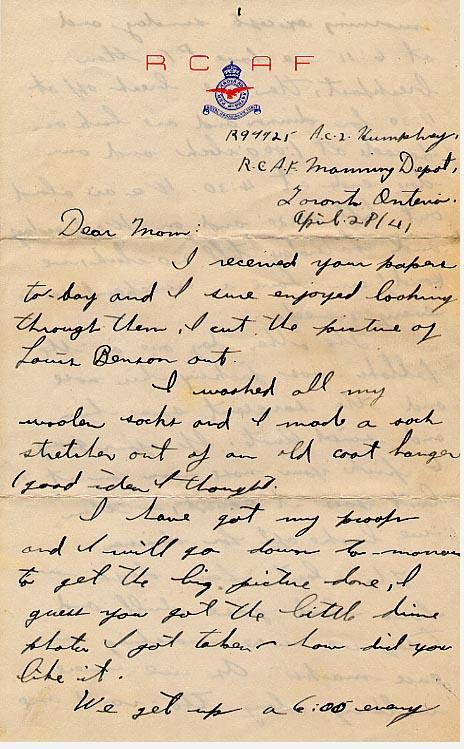 R C A F
R97725 A.C.2. Humphrey.
R.C.A.F. Manning Depot,
Toronto Ontario.
April. 28/41
Dear Mom:
I received your papers
to-day and I sure enjoyed looking
through them, I cut the picture of
Louis Benson out.
I washed all my
woolen socks and I made a sock
stretcher out of an old coat hanger
(good idea I thought.
I have got my proofs
and I will go down to-morrow
to get the big picture done, I
guess you got the little dime
photo I got taken how did you
like it.
We get up a 6:00 every